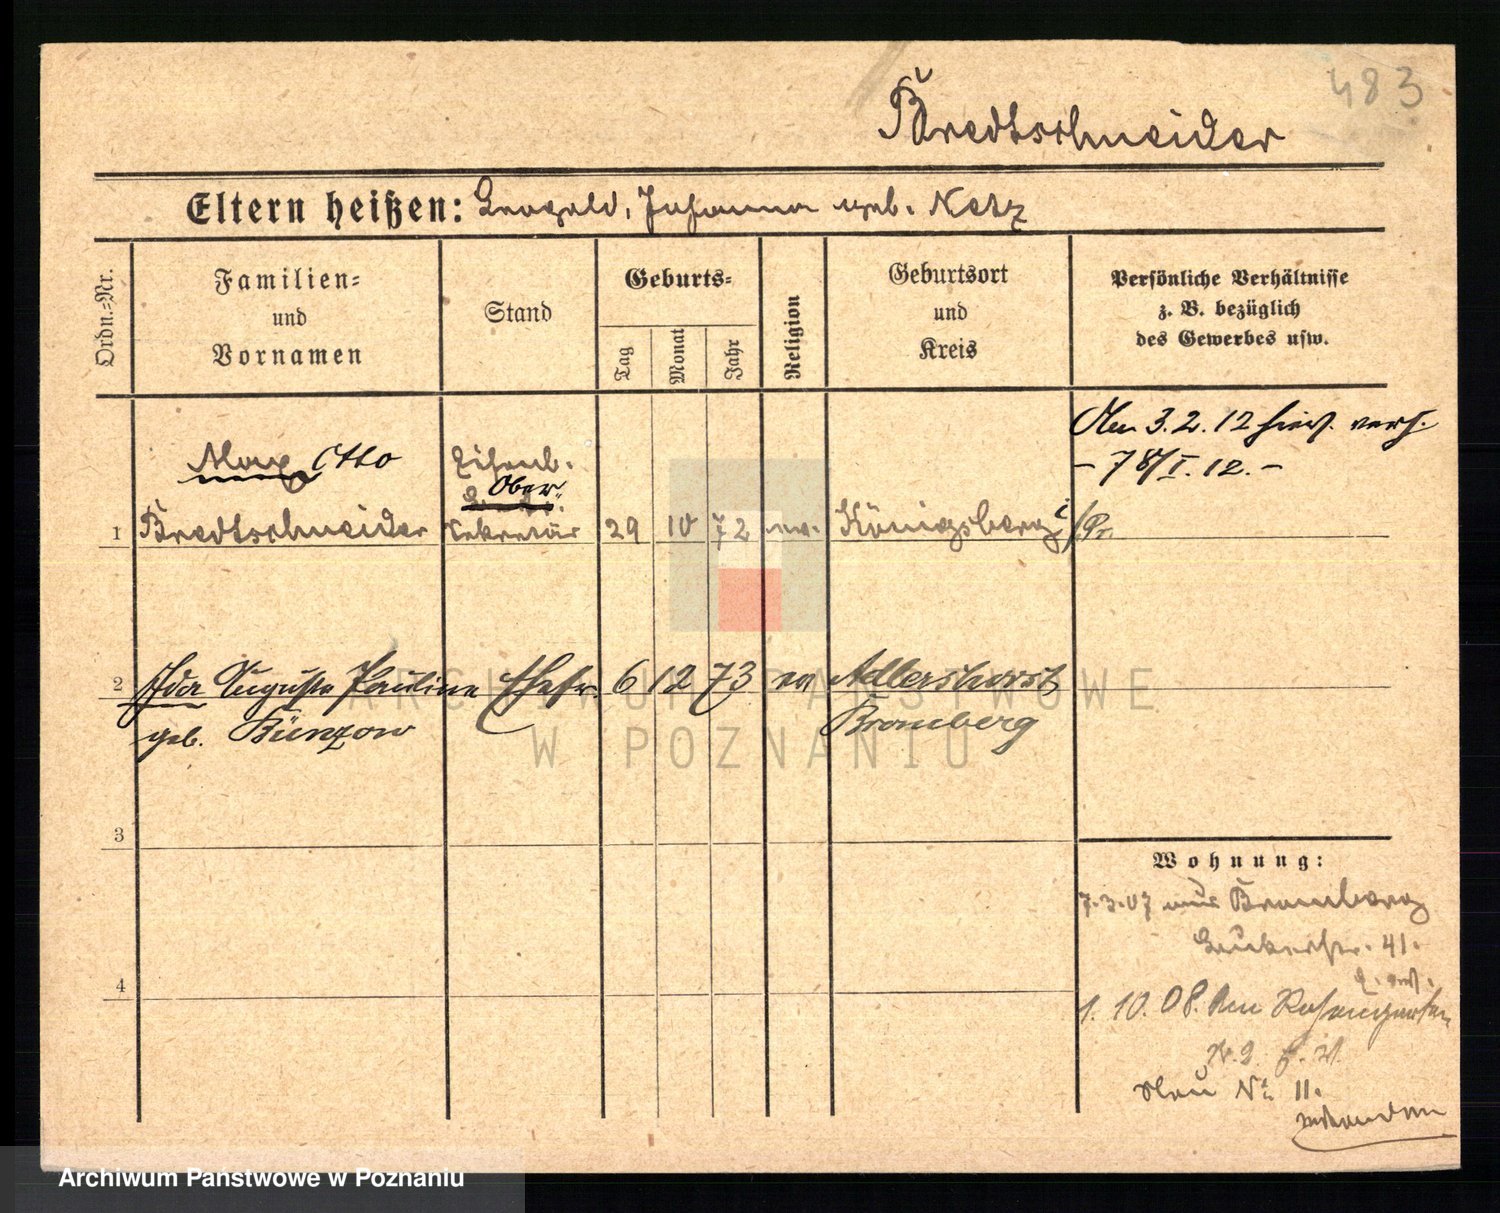 483
Bredtschneider
Eltern heißen: Leopold, Johanna geb. Netz
Ordn.=Nr.
Familien=
und
Vornamen
Stand
Geburts=
Tag
Monat
Jahr
Religion
Geburtsort
und
Kreis
Persönliche Verhältnisse
z. B. bezüglich
des Gewerbes usw.
3.2.12
- 78/I.12. -
Max Otto
Eisenb.
Ober
1 Bredtschneider Sekretär 29 10 72 ev. Königsberg i/Pr.
2 Ida Auguste Pauline Ehefr. 6 12 73 ev Adlershorst
geb. Bünzow Bromberg
3
4
Wohnung:
7.3.07 aus Bromberg
41.
1.10.08. Am Rosengarten
Nr. 9
Neu Nr. 11.
ARCHIWUM PAŃSTWOWE
W POZNANIU
Archiwum Państwowe w Poznaniu